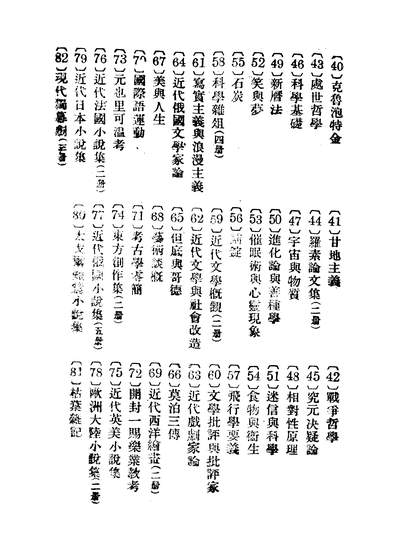 〔40〕克魯泡特金
〔41〕甘地主義
〔42〕戰爭哲學
〔43〕處世哲學
〔44〕羅素論文集(二册)
〔45〕究元決疑論
〔46〕科學基礎
〔47〕宇宙與物質
〔48〕相對性原理
〔49〕新曆法
〔50〕進化論與善種學
〔51〕迷信與科學
〔52〕笑與夢
〔53〕催眠術與心靈現象
〔54〕食物與衞生
〔55〕石炭
〔56〕錠
〔57〕飛行學要義
〔58〕科學雜俎(四册)
〔59〕近代文學概觀(二册)
〔60〕文學批評與批評家
〔61〕寫實主義與浪漫主義
〔62〕近代文學與社會改造
〔63〕近代戲劇家論
〔64〕近代俄國文學家論
〔65〕但底與哥德
〔66〕莫泊三傳
〔67〕美與人生
〔68〕藝術談概
〔69〕近代西洋繪畫(二册)
〔70〕國際語運動
〔71〕考古學零簡
〔72〕開封一賜樂業教考
〔73〕元也里可溫考
〔74〕東方創作集(二册)
〔75〕近代英美小說集
〔76〕近代法國小說集(二册)
〔77〕近代俄國小說集(五册)
〔78〕歐洲大陸小說集(二册)
〔79〕近代日本小說集
〔80〕小說集
〔81〕枯葉雜記
〔82〕現代獨幕劇(三册)